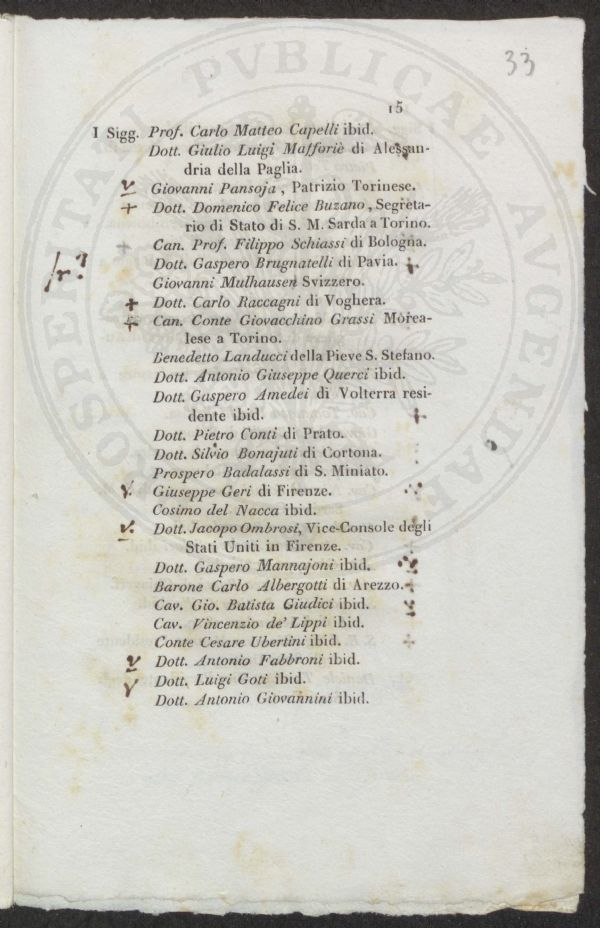 33
15
I Sigg. Prof. Carlo Matteo Capelli ibid.
Dott. Giulio Luigi Mafforiè di Alessan-
dria della Paglia.
Giovanni Pansoja , Patrizio Torinese.
Dott. Domenico Felice Buzano , Segreta-
rio di Stato di S. M. Sarda a Torino.
Can. Prof. Filippo Schiassi di Bologna.
Dott. Gaspero Brugnatelli di Pavia.
Giovanni Mulhausen Svizzero.
Dott. Carlo Raccagni di Voghera.
Can. Conte Giovacchino Grassi Morea-
lese a Torino.
Benedetto Landucci della Pieve S. Stefano.
Dott. Antonio Giuseppe Querci ibid.
Dott. Gaspero Amedei di Volterra resi-
dente ibid.
Dott. Pietro Conti di Prato.
Dott. Silvio Bonajuti di Cortona.
Prospero Badalassi di S. Miniato.
Giuseppe Geri di Firenze.
Cosimo del Nacca ibid.
Dott. Jacopo Ombrosi, Vice-Console degli
Stati Uniti in Firenze.
Dott. Gaspero Mannajoni ibid.
Barone Carlo Albergotti di Arezzo.
Cav. Gio. Batista Giudici ibid.
Cav. Vincenzio de' Lippi ibid.
Conte Cesare Ubertini ibid.
Dott. Antonio Fabbroni ibid.
Dott. Luigi Goti ibid.
Dott. Antonio Giovannini ibid.
PROSPERITAN PVBLICAE AVGENDAE